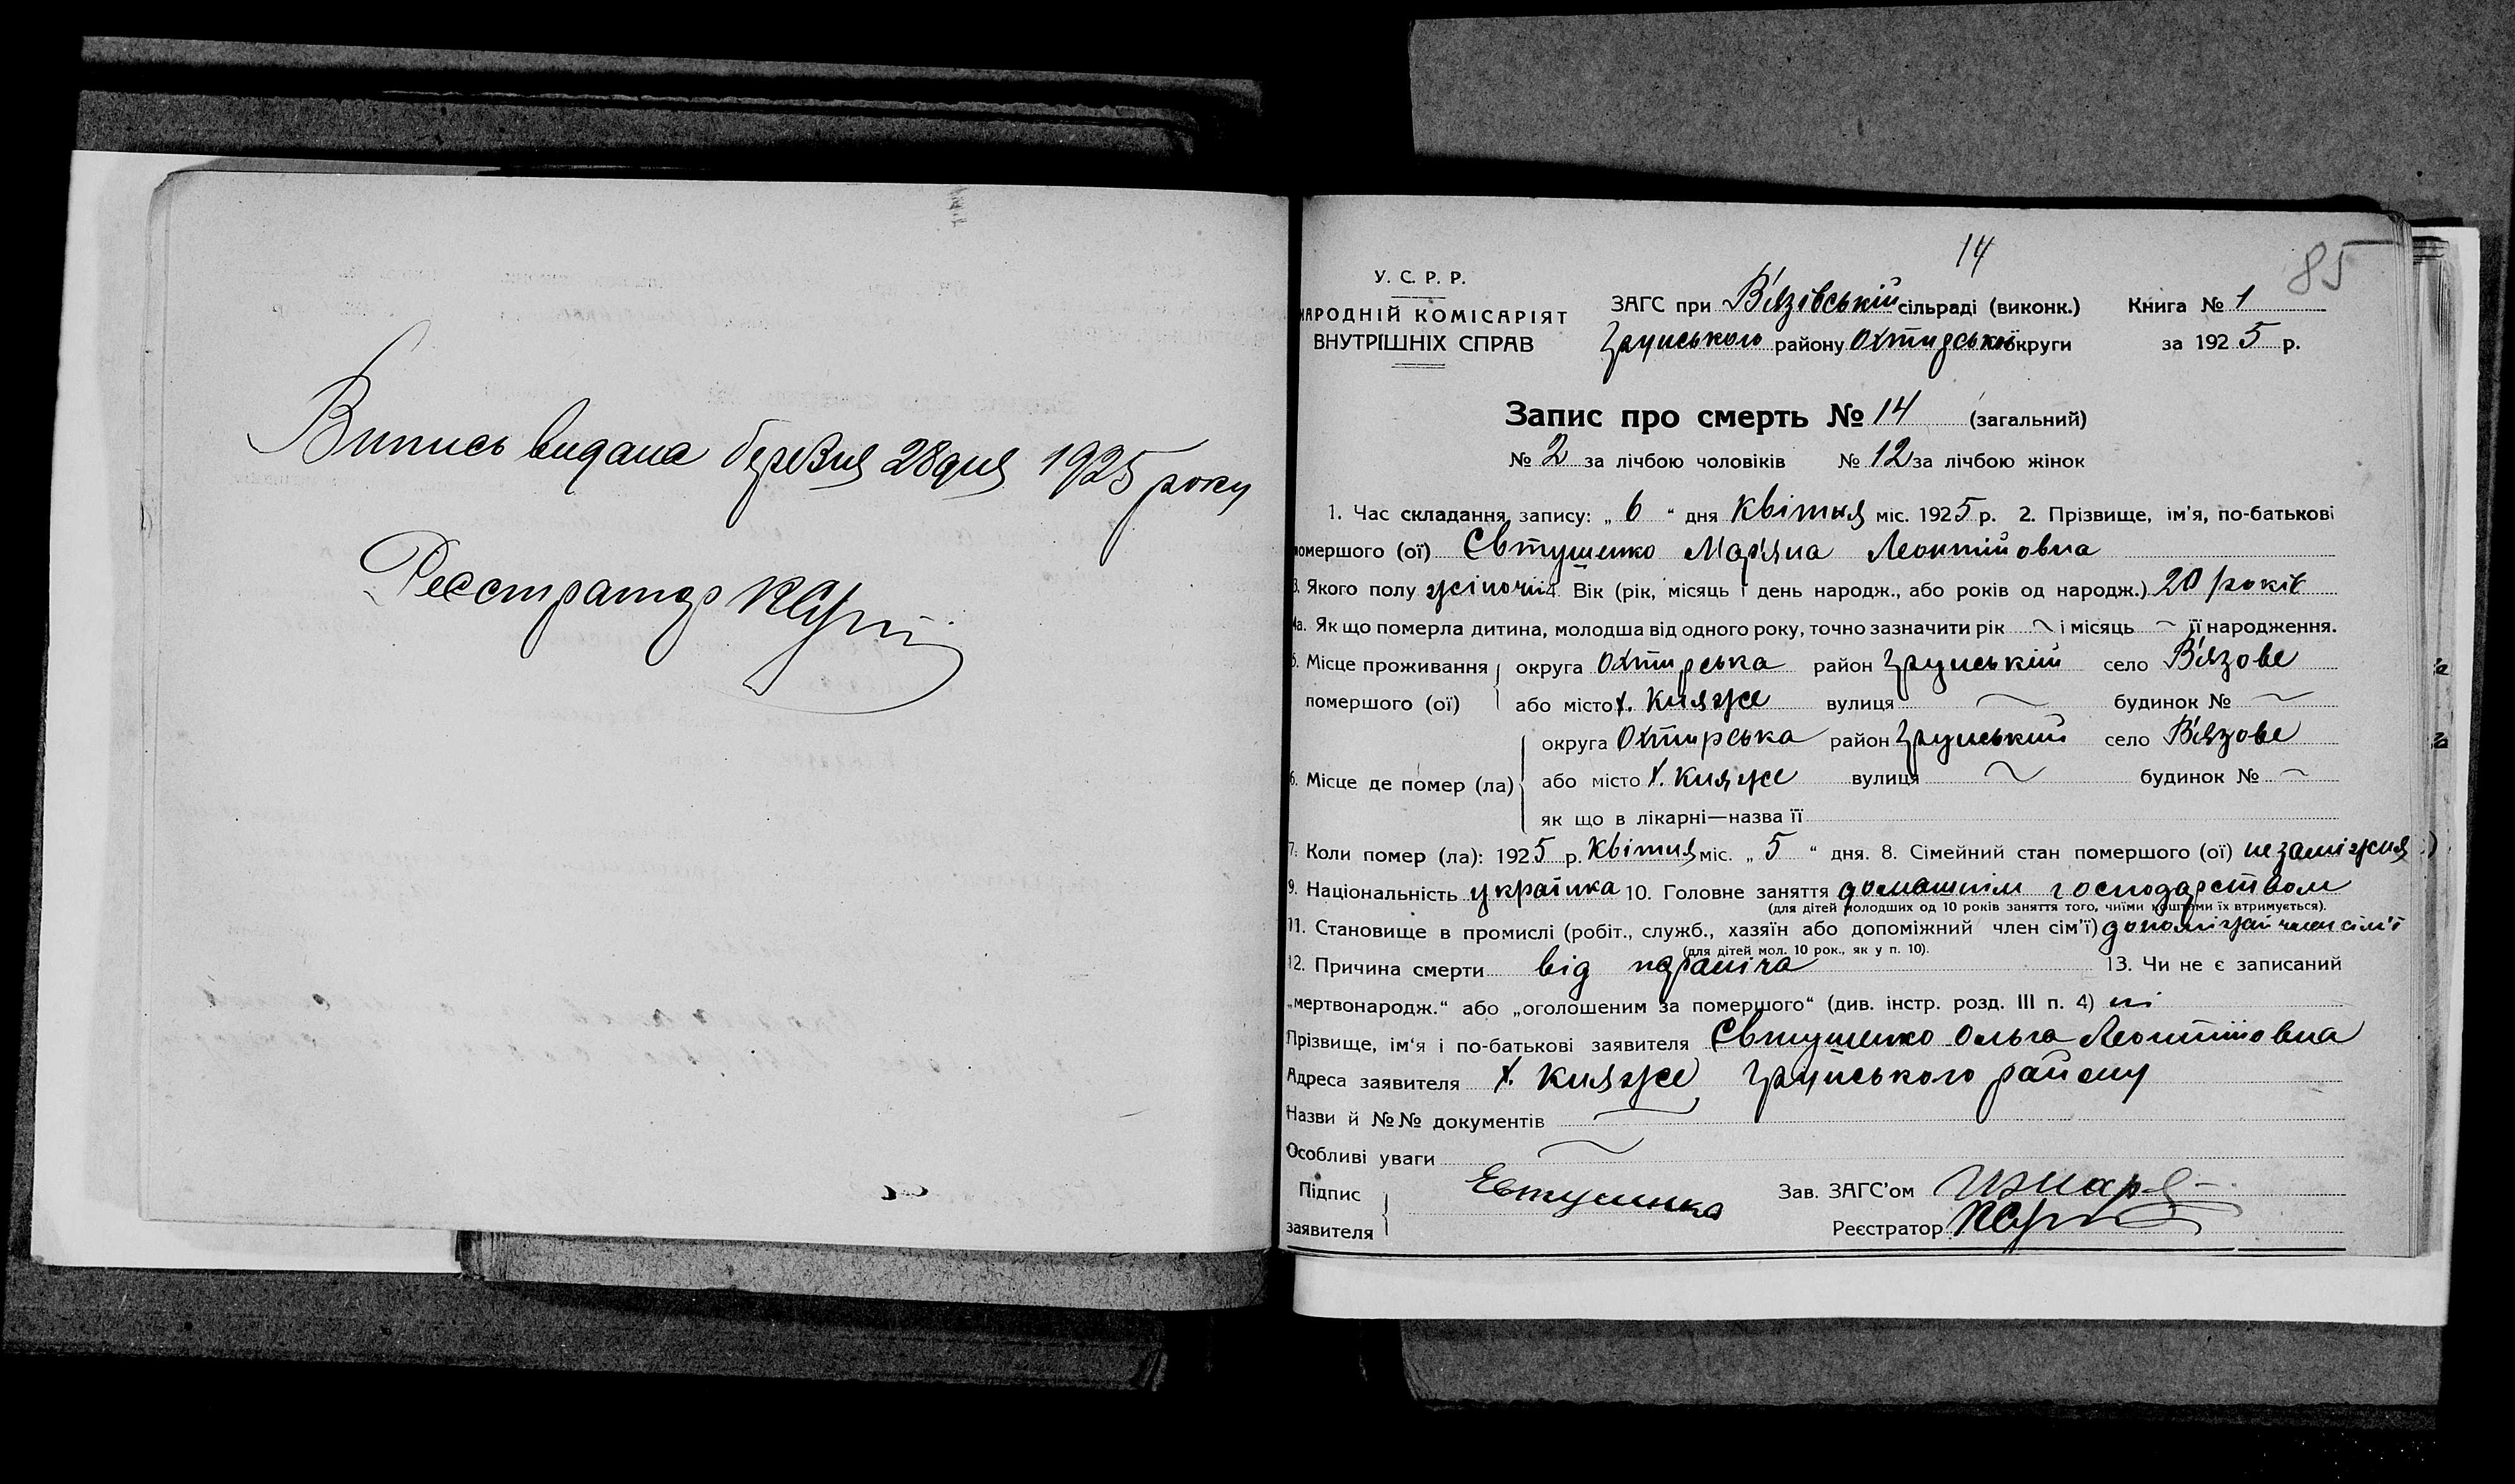 Випись видана березня 28 дня 1925 року
Реєстратор
14
85
У. С. Р. Р.
НАРОДНІЙ КОМІСАРІЯТ
ВНУТРІШНІХ СПРАВ
ЗАГС при В'язівській сільраді (виконк.) Книга № 1
Грунського району Охтирської округи за 1925 р.
Запис про смерть № 14 (загальний)
№ 2 за лічбою чоловіків № 12 за лічбою жінок
1. Час складання запису: „ 6 “ дня Квітня міс. 1925 р. 2. Прізвище, ім'я, по-батькові
помершого (ої) Євтушенко Мар'яна Леонтійовна
3. Якого полу жіночий 4. Вік (рік, місяць і день народж., або років од народж.) 20 років
4а. Як що померла дитина, молодша від одного року, точно зазначити рік ~ і місяць ~ її народження.
5. Місце проживання округа Охтирська район Грунський село В'язове
помершого (ої) або місто х. Княже вулиця ~ будинок № ~
округа Охтирська район Грунський село В'язове
6. Місце де помер (ла) або місто х. Княже вулиця ~ будинок № ~
як що в лікарні—назва її
7. Коли помер (ла): 1925 р. Квітня міс. „ 5 “ дня. 8. Сімейний стан помершого (ої) незаміжня
9. Національність українка 10. Головне заняття домашнім господарством
(для дітей молодших од 10 років заняття того, чиїми коштами їх втримується).
11. Становище в промислі (робіт., служб., хазяїн або допоміжний член сім'ї) допоміжний член сім'ї
(для дітей мол. 10 рок., як у п. 10).
12. Причина смерти від 13. Чи не є записаний
„мертвонародж.“ або „оголошеним за помершого“ (див. інстр. розд. III п. 4) ні
Прізвище, ім'я і по-батькові заявителя Євтушенко Ольга Леонтійовна
Адреса заявителя х. Княже Грунського району
Назви й №№ документів ~
Особливі уваги ~
Підпис Евтушенко Зав. ЗАГС'ом
заявителя Реєстратор